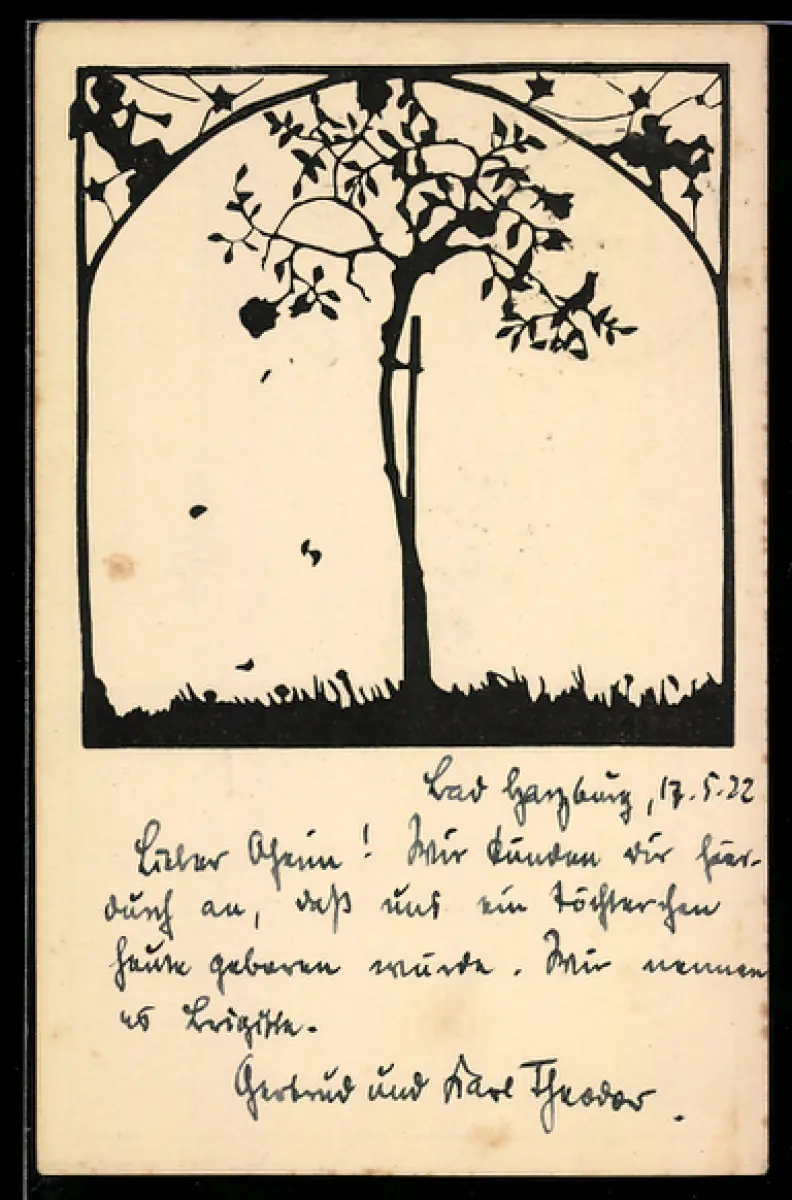 Bad Harzburg, 17.5.22
Lieber Oheim! Wir künden dir hier-
durch an, daß uns ein Töchterchen
heute geboren wurde. Wir nennen
es Brigitte.
Gertrud und Karl Theodor.